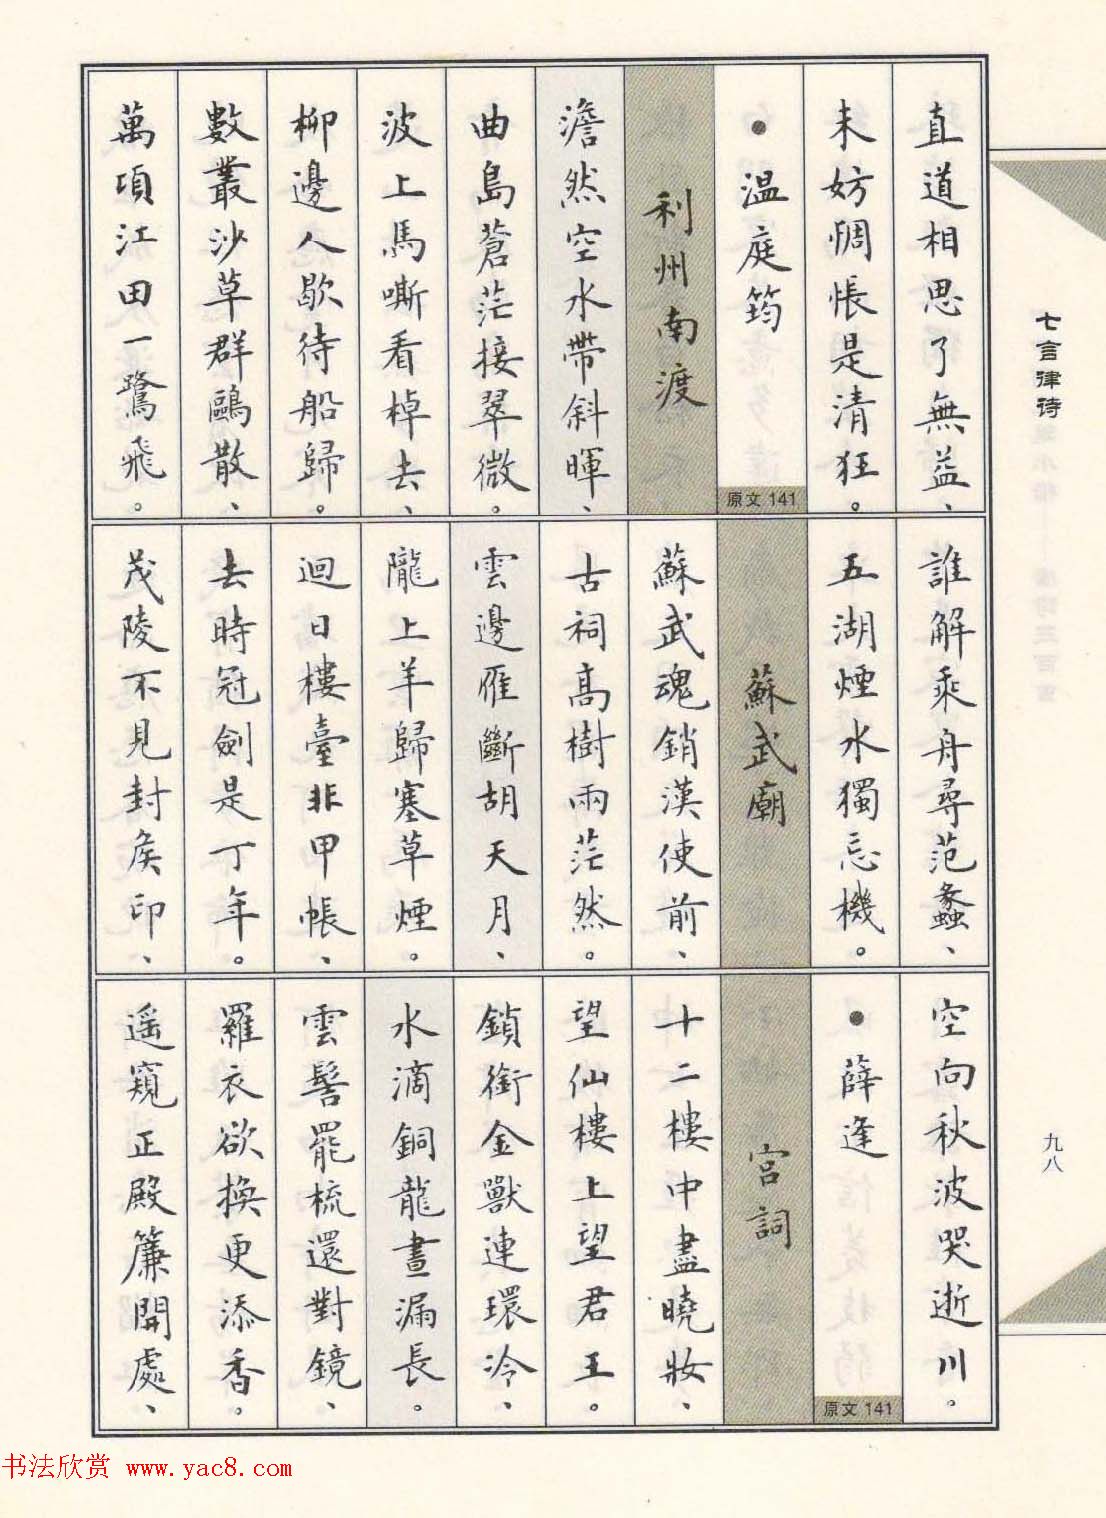 直道相思了無益、
未妨惆悵是清狂。
●溫庭筠
原文 141
利州南渡
澹然空水帶斜暉、
曲島蒼茫接翠微。
波上馬嘶看棹去、
柳邊人歇待船歸。
數叢沙草群鷗散、
萬頃江田一鷺飛。
誰解乘舟尋范蠡、
五湖煙水獨忘機。
蘇武廟
蘇武魂銷漢使前、
古祠高樹兩茫然。
雲邊雁斷胡天月、
隴上羊歸塞草煙。
迴日樓臺非甲帳、
去時冠劍是丁年。
茂陵不見封侯印、
空向秋波哭逝川。
●薛逢
原文 141
宮詞
十二樓中盡曉妝、
望仙樓上望君王。
鎖銜金獸連環冷、
水滴銅龍晝漏長。
雲髻罷梳還對鏡、
羅衣欲換更添香。
遥窺正殿簾開處、
七言律诗
九八
书法欣赏 www.yac8.com